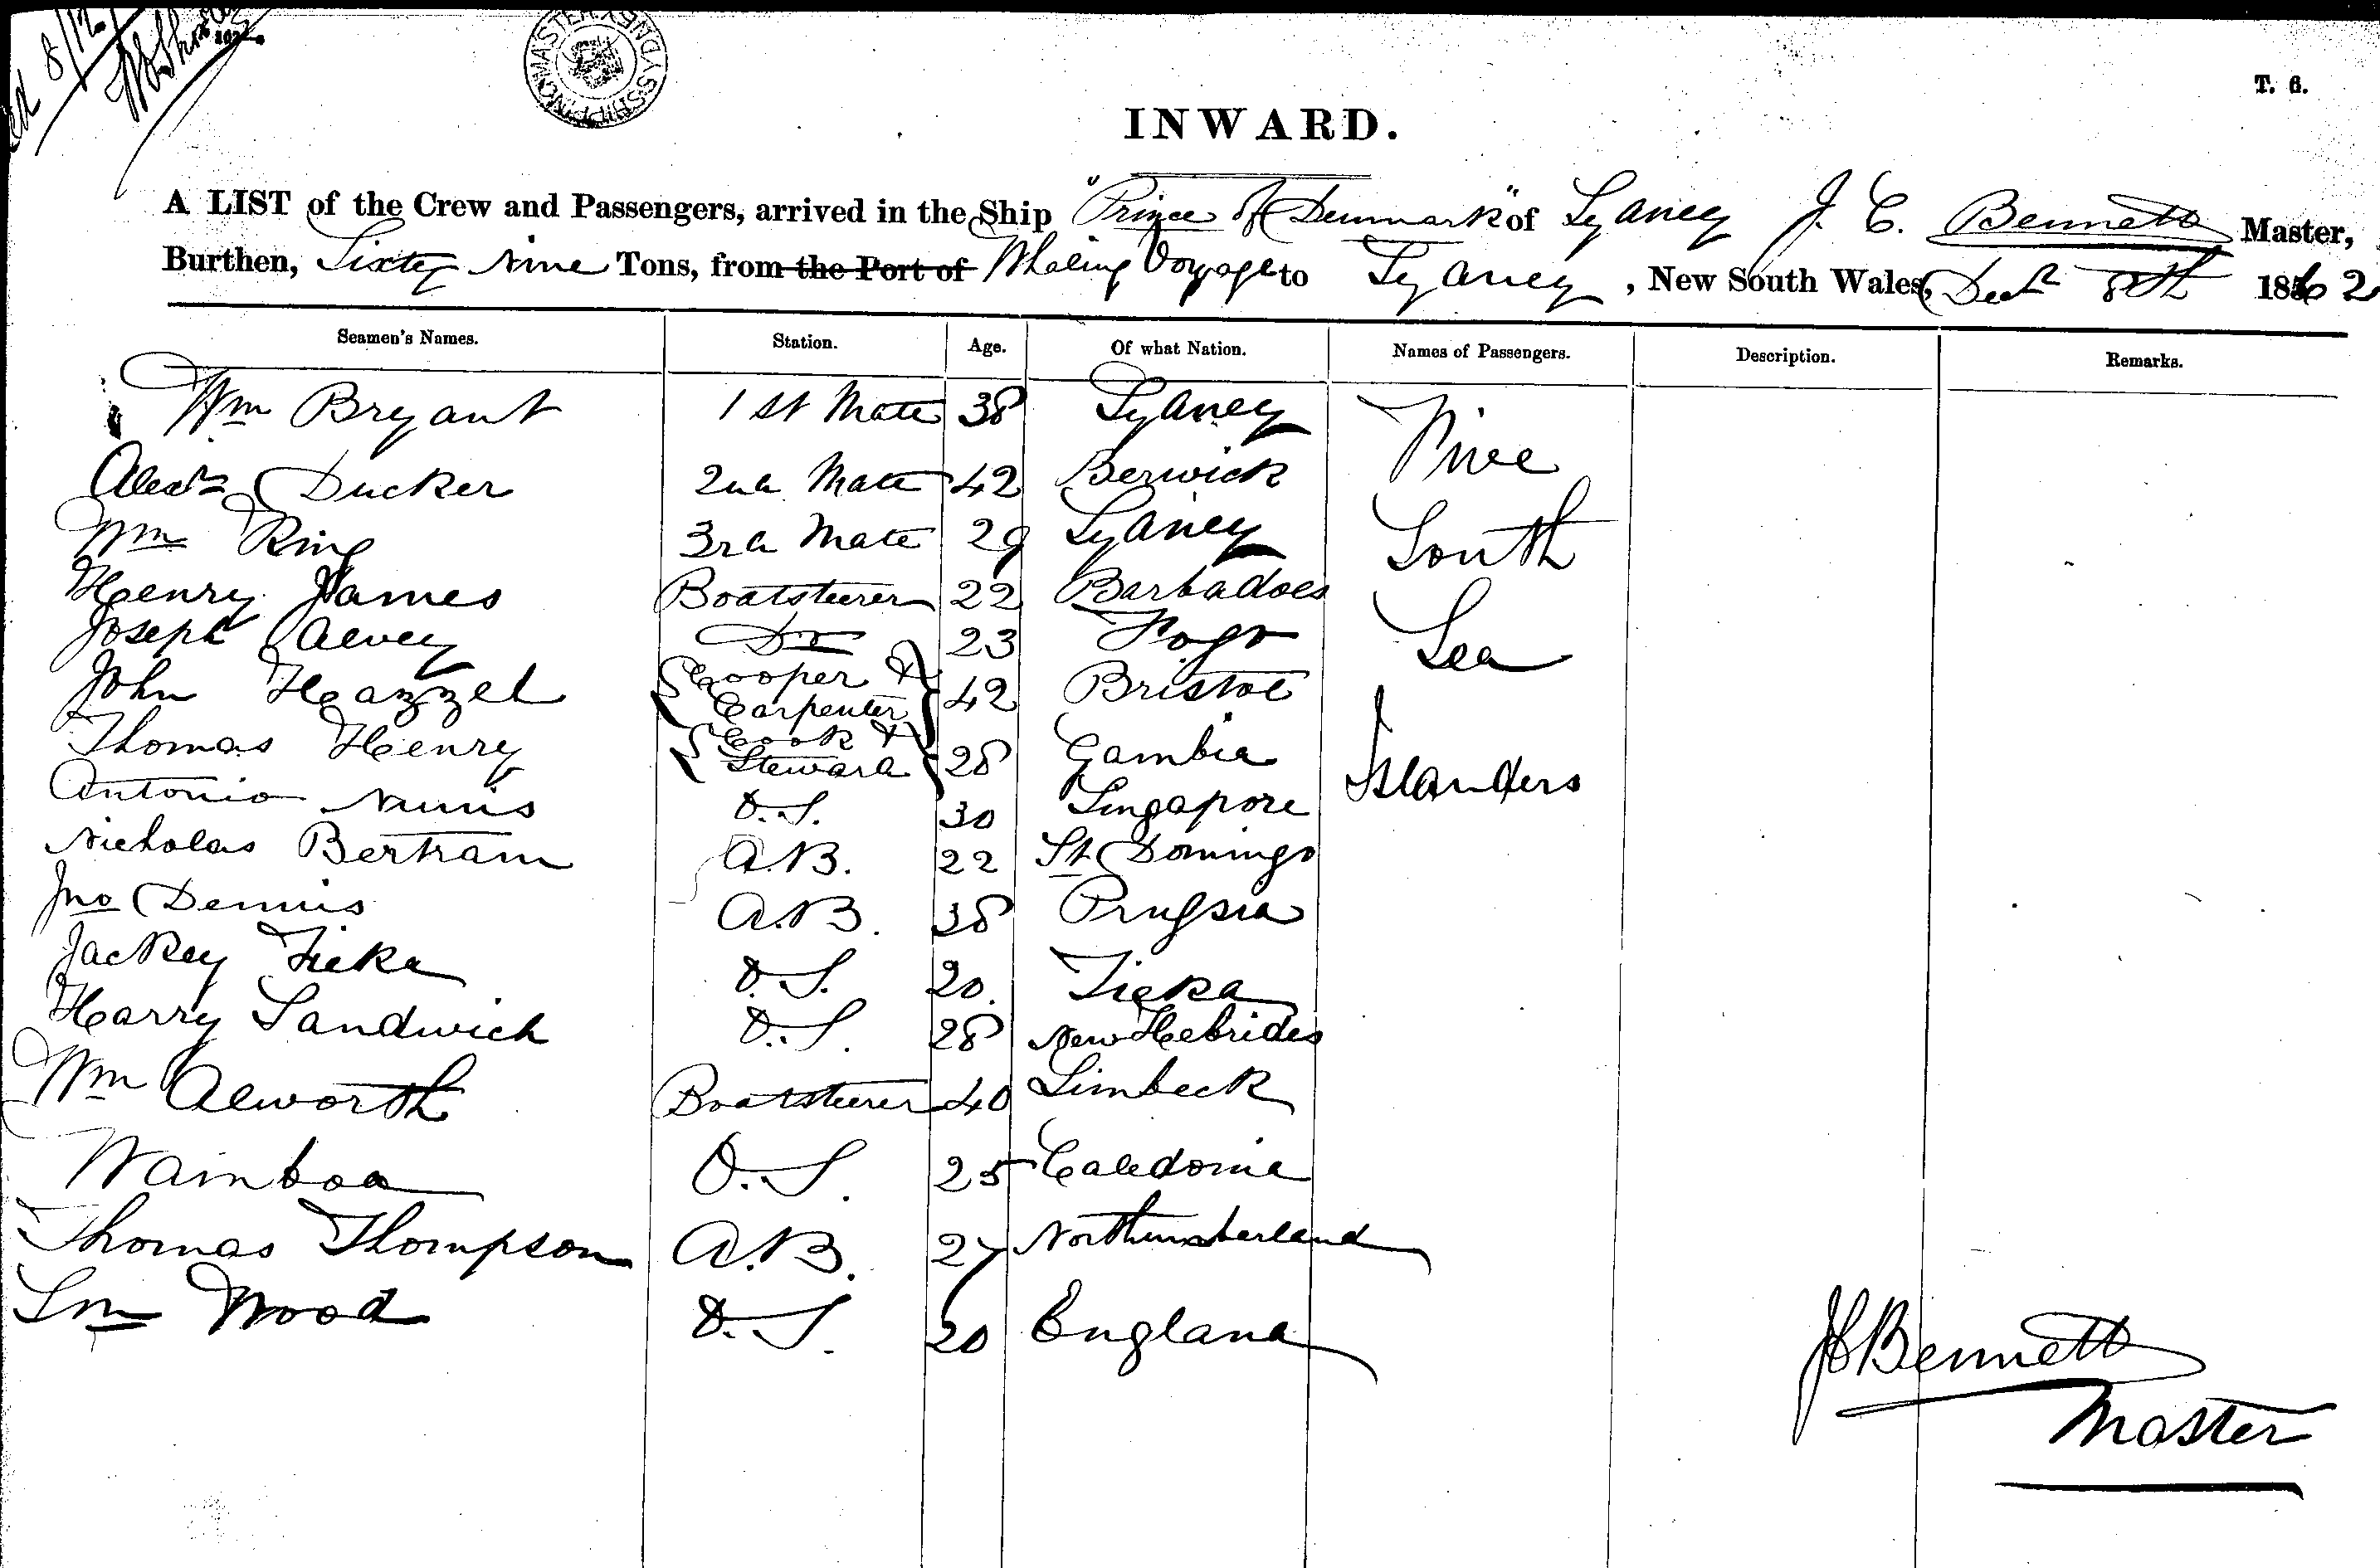 8/12
SHIPPING MASTER SYDNEY
T. 6.
INWARD.
A LIST of the Crew and Passengers, arrived in the Ship "Prince of Denmark" of Sydney J. C. Bennett Master,
Burthen, Sixty Nine Tons, from the Port of Whaling Voyage to Sydney, New South Wales, Decr 8th 1862
Seamen's Names. Station. Age. Of what Nation. Names of Passengers. Description. Remarks.
Wm Bryant 1st Mate 38 Sydney Five
Alexr Ducker 2nd Mate 42 Berwick
Wm Ring 3rd Mate 29 Sydney South
Henry James Boatsteerer 22 Barbadoes
Joseph Alvey Do 23 Fogo Sea
John Heazzel Cooper & Carpenter 42 Bristol
Thomas Henry Cook & Steward 28 Gambia Islanders
Antonio Nunis O.S. 30 Singapore
Nicholas Bertram A.B. 22 St Domingo
Jno Dennis A.B. 38 Prussia
Jackey Tieka O.S. 20. Tieka
Harry Sandwich O.S. 28 New Hebrides
Wm Alworth Boatsteerer 40 Limbeck
Wainboa O.S. 25 Caledonia
Thomas Thompson A.B. 27 Northumberland
Sm Wood O.S. 20 England
JC Bennett
Master